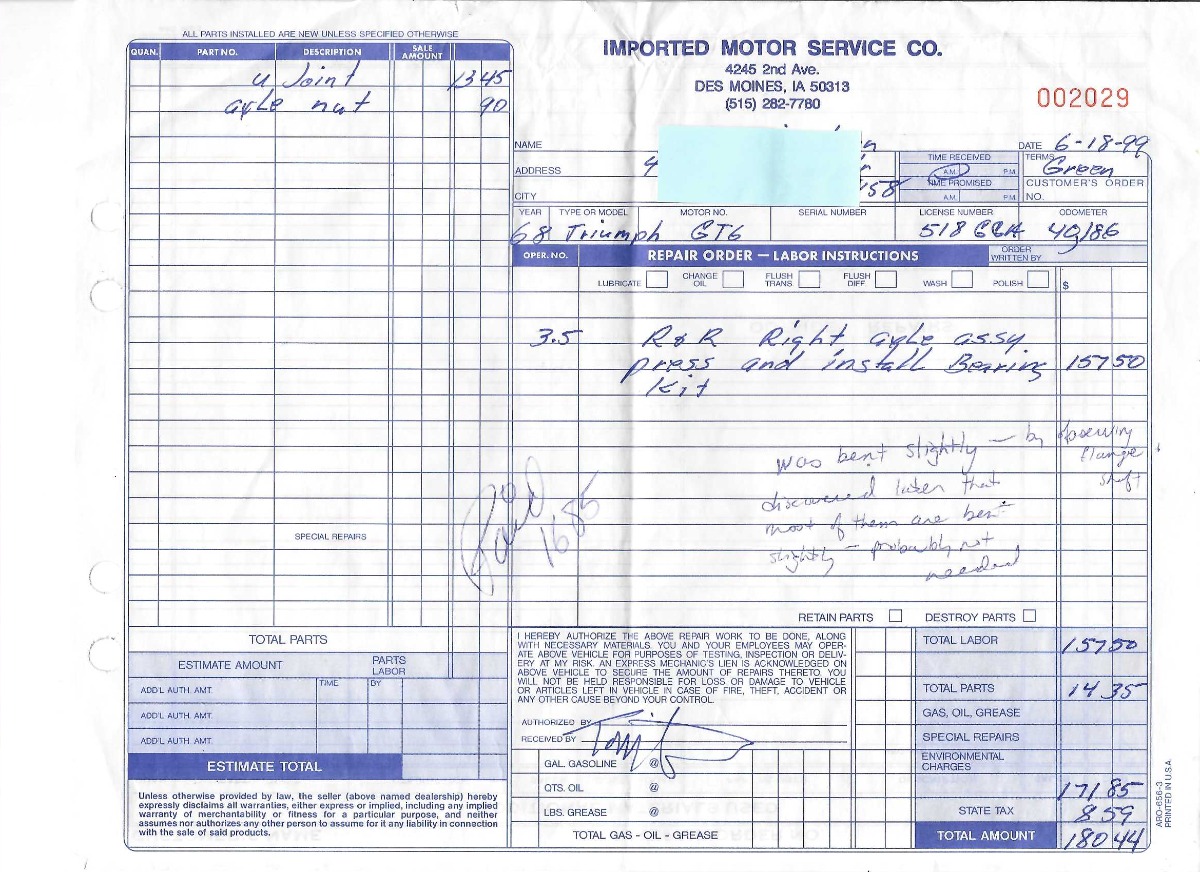 ALL PARTS INSTALLED ARE NEW UNLESS SPECIFIED OTHERWISE
QUAN. PART NO. DESCRIPTION SALE AMOUNT
u Joint 13 45
axle nut 90
IMPORTED MOTOR SERVICE CO.
4245 2nd Ave.
DES MOINES, IA 50313
(515) 282-7780
002029
NAME DATE 6-18-99
ADDRESS 4 TIME RECEIVED A.M. P.M. TERMS Green
CITY 58 TIME PROMISED A.M. P.M. CUSTOMER'S ORDER NO.
YEAR TYPE OR MODEL MOTOR NO. SERIAL NUMBER LICENSE NUMBER ODOMETER
68 Triumph GT6 518 49186
OPER. NO. REPAIR ORDER — LABOR INSTRUCTIONS ORDER WRITTEN BY
LUBRICATE CHANGE OIL FLUSH TRANS. FLUSH DIFF. WASH POLISH $
3.5 R & R Right axle assy
press and install Bearing 157 50
Kit
was bent slightly — by
flange
shaft
discovered later that
most of them are bent
slightly — probably not
needed
Paid
1685
SPECIAL REPAIRS
RETAIN PARTS DESTROY PARTS
TOTAL PARTS
ESTIMATE AMOUNT PARTS LABOR
ADD'L AUTH. AMT. TIME BY
ADD'L AUTH. AMT.
ADD'L AUTH. AMT.
ESTIMATE TOTAL
Unless otherwise provided by law, the seller (above named dealership) hereby
expressly disclaims all warranties, either express or implied, including any implied
warranty of merchantability or fitness for a particular purpose, and neither
assumes nor authorizes any other person to assume for it any liability in connection
with the sale of said products.
I HEREBY AUTHORIZE THE ABOVE REPAIR WORK TO BE DONE, ALONG
WITH NECESSARY MATERIALS. YOU AND YOUR EMPLOYEES MAY OPER-
ATE ABOVE VEHICLE FOR PURPOSES OF TESTING, INSPECTION OR DELIV-
ERY AT MY RISK. AN EXPRESS MECHANIC'S LIEN IS ACKNOWLEDGED ON
ABOVE VEHICLE TO SECURE THE AMOUNT OF REPAIRS THERETO. YOU
WILL NOT BE HELD RESPONSIBLE FOR LOSS OR DAMAGE TO VEHICLE
OR ARTICLES LEFT IN VEHICLE IN CASE OF FIRE, THEFT, ACCIDENT OR
ANY OTHER CAUSE BEYOND YOUR CONTROL.
AUTHORIZED BY
RECEIVED BY
GAL. GASOLINE @
QTS. OIL @
LBS. GREASE @
TOTAL GAS - OIL - GREASE
TOTAL LABOR 157 50
TOTAL PARTS 14 35
GAS, OIL, GREASE
SPECIAL REPAIRS
ENVIRONMENTAL CHARGES
171 85
STATE TAX 8 59
TOTAL AMOUNT 180 44
ARO-656-3
PRINTED IN U.S.A.